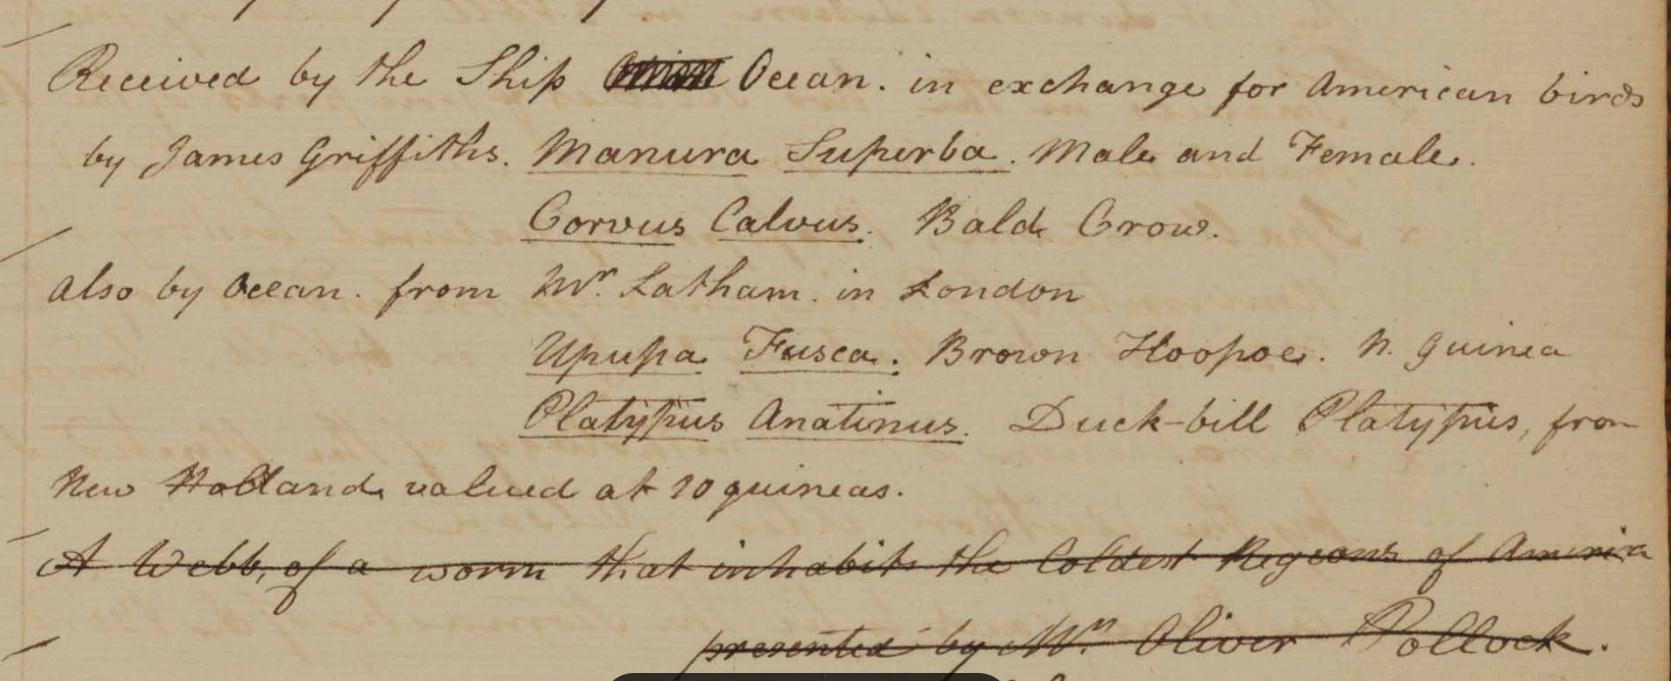 Received by the Ship Ocean. in exchange for American birds
by James Griffiths. Manura Superba. Male and Female.
Corvus Calvus. Bald Crow.
Also by Ocean. from Mr. Latham. in London
Upupa Fusca. Brown Hoopoe. N. Guinea
Platypus Anatinus. Duck-bill Platypus, from
New Holland valued at 10 guineas.
A Webb, of a worm that inhabits the Coldest Regions of America
presented by Mr. Oliver Pollock.